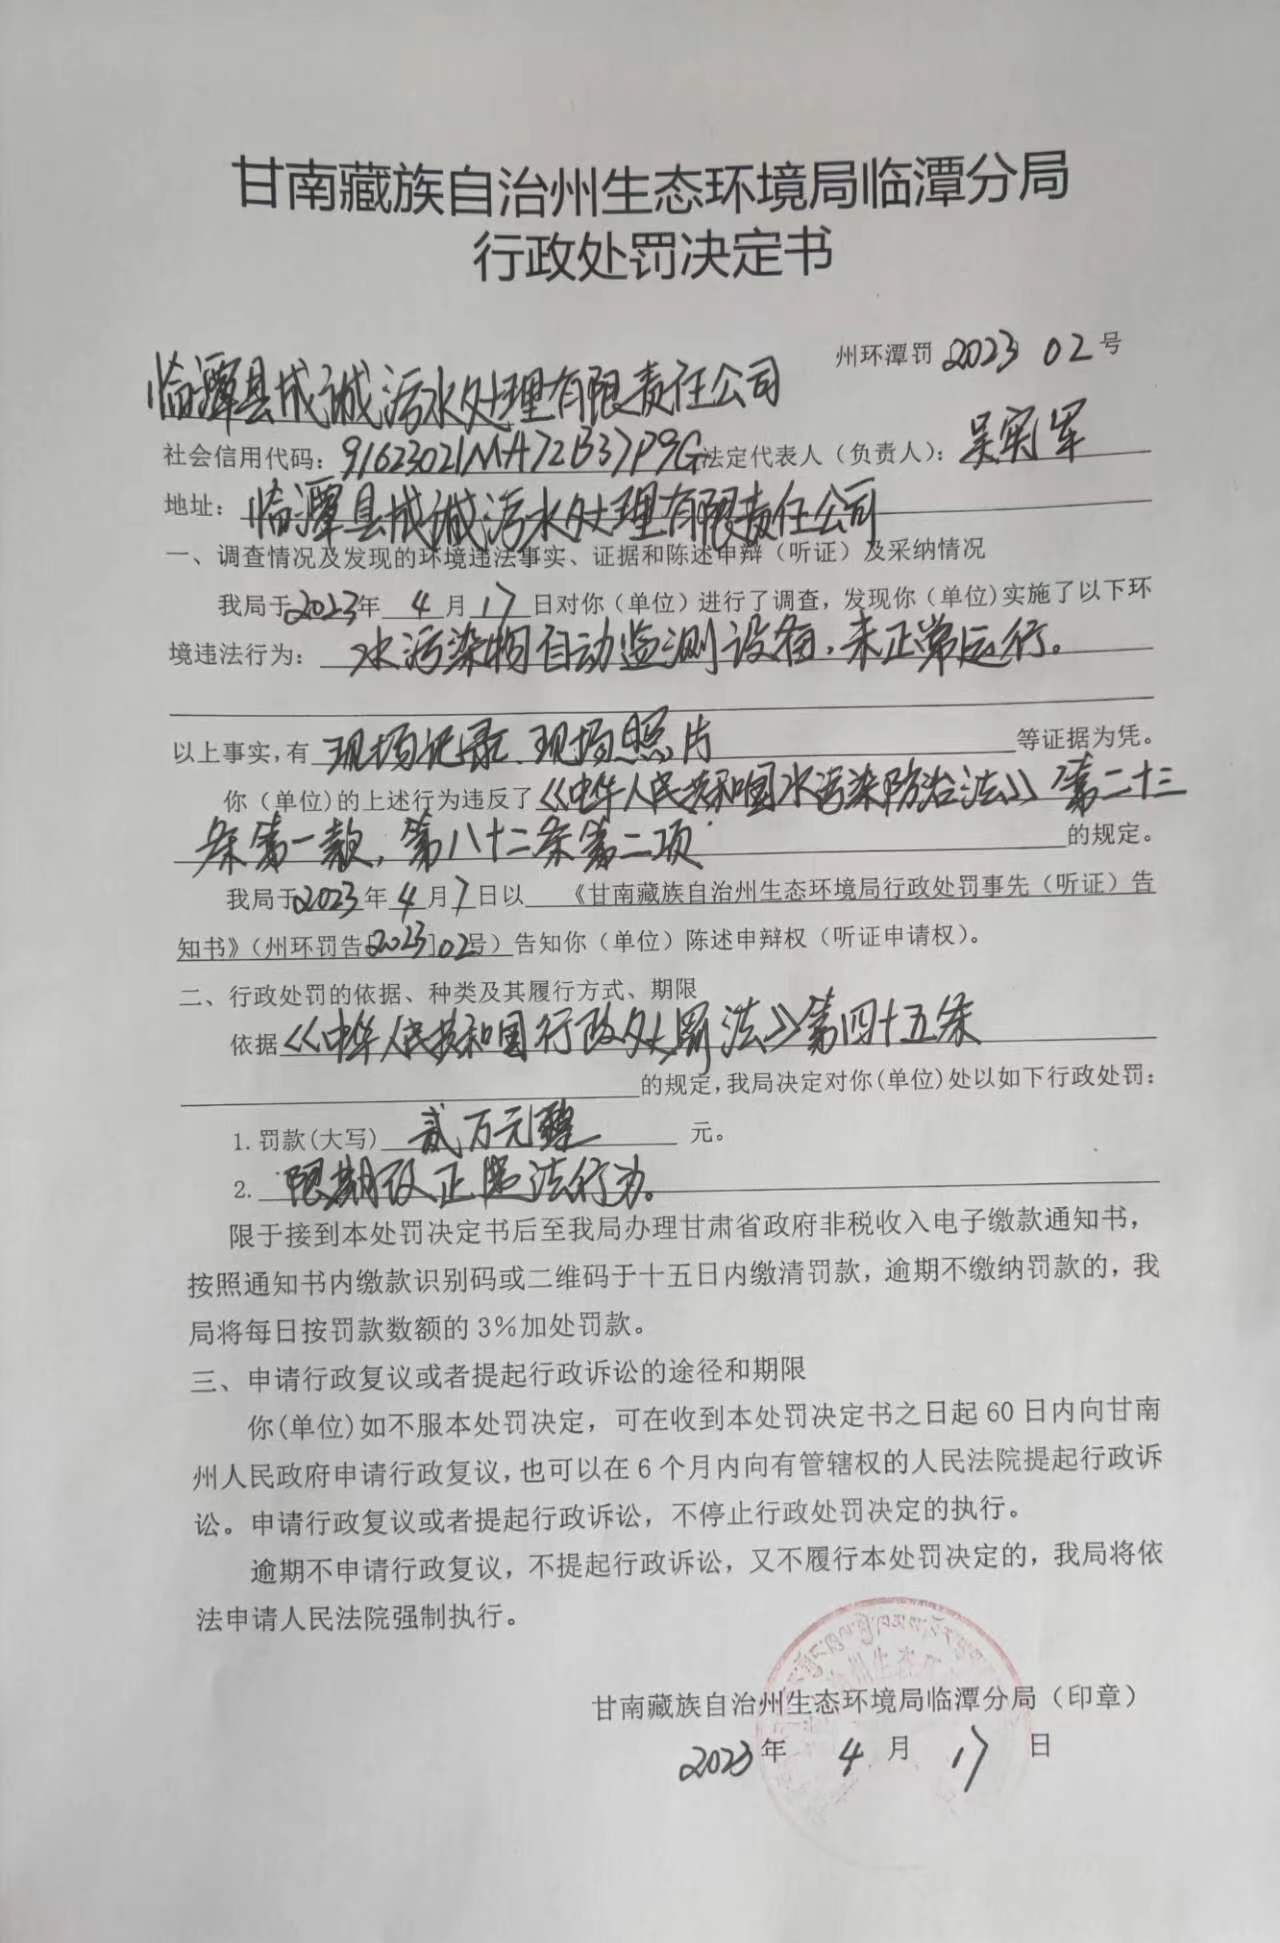 甘南藏族自治州生态环境局临潭分局
行政处罚决定书
州环潭罚 2023 02 号
临潭县成诚污水处理有限责任公司
社会信用代码：91623021MA72B37P9G法定代表人（负责人）：吴军
地址：临潭县成诚污水处理有限责任公司
一、调查情况及发现的环境违法事实、证据和陈述申辩（听证）及采纳情况
我局于2023年 4 月 17 日对你（单位）进行了调查，发现你（单位)实施了以下环
境违法行为：水污染物自动监测设备，未正常运行。
以上事实，有 现场记录、现场照片 等证据为凭。
你（单位)的上述行为违反了《中华人民共和国水污染防治法》第二十三
条第一款，第八十二条第二项 的规定。
我局于2023年 4 月 7 日以 《甘南藏族自治州生态环境局行政处罚事先（听证）告
知书》（州环罚告[2023]02号）告知你（单位）陈述申辩权（听证申请权）。
二、行政处罚的依据、种类及其履行方式、期限
依据《中华人民共和国行政处罚法》第四十五条
的规定，我局决定对你(单位)处以如下行政处罚：
1.罚款(大写) 贰万元整 元。
2. 限期改正违法行为。
限于接到本处罚决定书后至我局办理甘肃省政府非税收入电子缴款通知书，
按照通知书内缴款识别码或二维码于十五日内缴清罚款，逾期不缴纳罚款的，我
局将每日按罚款数额的 3%加处罚款。
三、申请行政复议或者提起行政诉讼的途径和期限
你(单位)如不服本处罚决定，可在收到本处罚决定书之日起 60 日内向甘南
州人民政府申请行政复议，也可以在 6 个月内向有管辖权的人民法院提起行政诉
讼。申请行政复议或者提起行政诉讼，不停止行政处罚决定的执行。
逾期不申请行政复议，不提起行政诉讼，又不履行本处罚决定的，我局将依
法申请人民法院强制执行。
甘南藏族自治州生态环境局临潭分局（印章）
2023 年 4 月 17 日